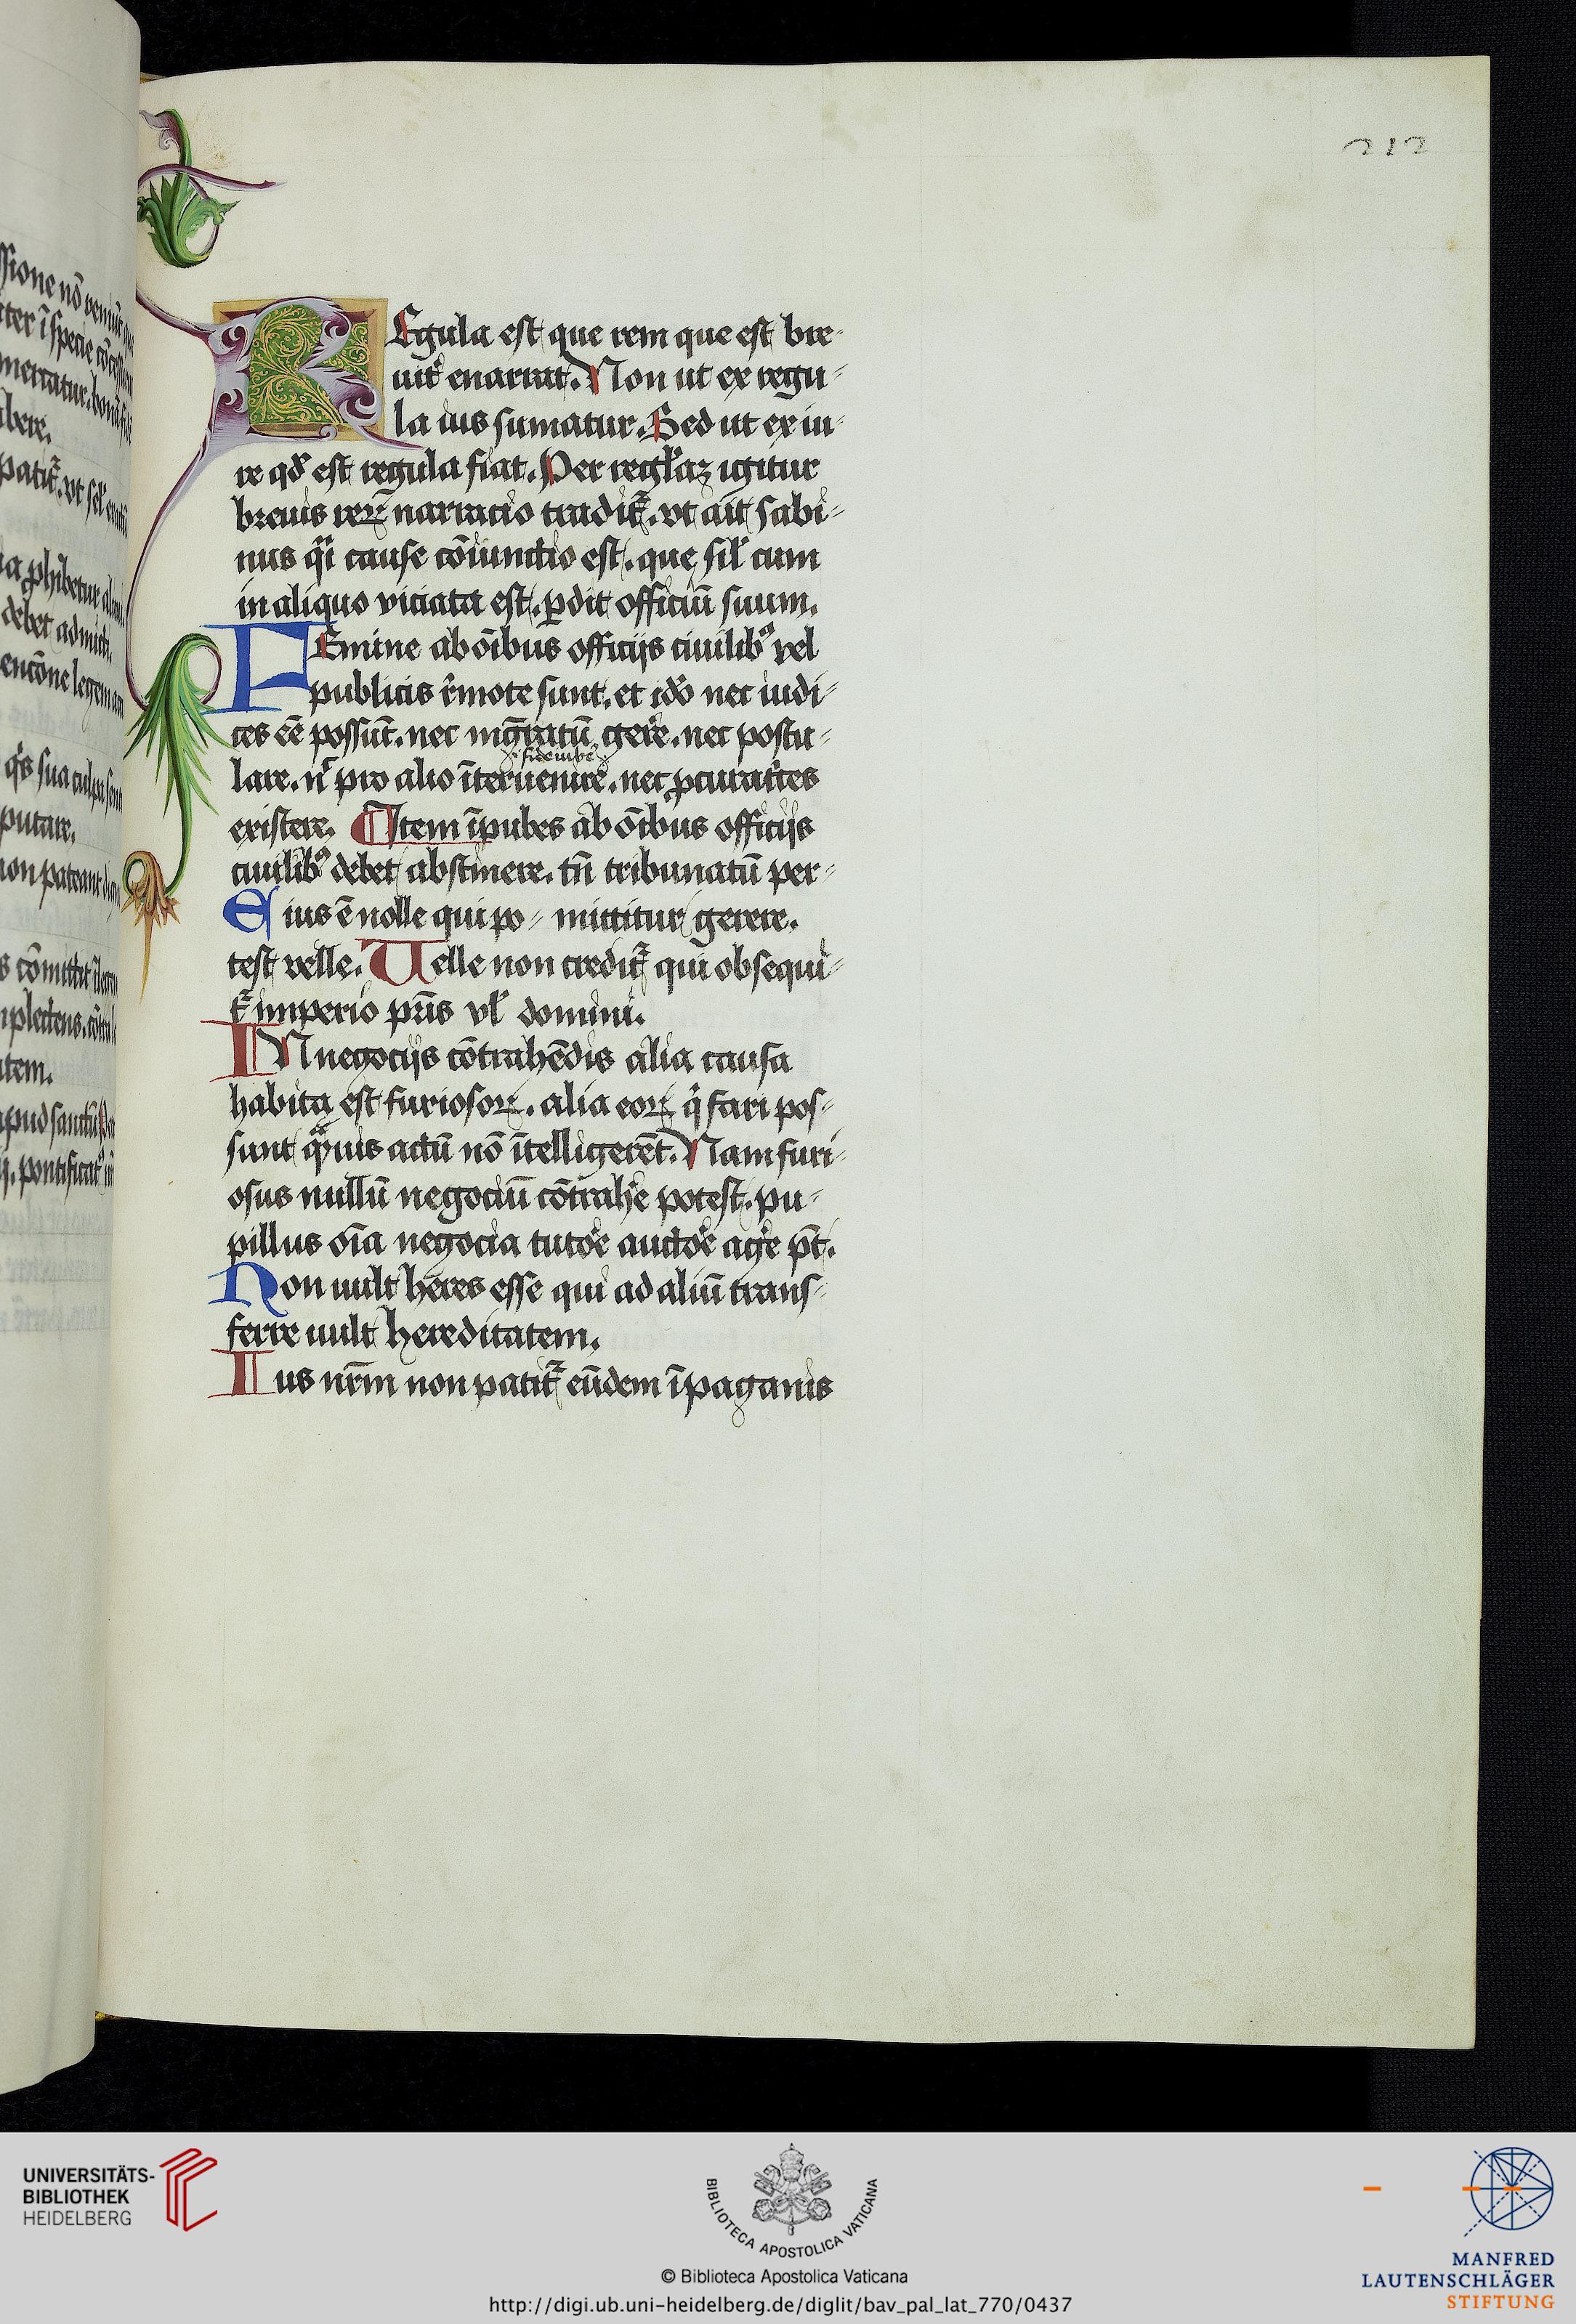 212
REgula est que rem que est bre-
uit᷑ enarrat. Non ut ex regu-
la ius sumatur. Sed ut ex iu-
re qd̛ est regula fiat. Per regl̛aʒ igitur
breuis reꝝ narracio tradit᷑. vt ait sabi-
nus q̈i cause cōiunctio est. que sil̛ cum
in aliquo viciata est. ꝑdit officiū suum.
FEmine ab oībus officijs ciuilibꝰ vel
publicis r̛mote sunt. et idơ nec iudi-
ces eē possūt. nec mgr̄atū gere̛. nec postu-
lare. n̛ pro alio īteruenire. nec ꝓcuratơes
existere. Item īpubes ab oībus officijs
ciuilibꝰ debet abstinere. tn̄ tribunatū per-
Ei ius ē nolle qui po- mittitur gerere.
test velle. Uelle non credit᷑ qui obsequi-
t᷑ imperio pr̄is vl̛ domini.
IN negocijs cōtrahēdis alia causa
habita est furiosoꝝ. alia eoꝝ q̛ fari pos-
sunt q̈̄uis actū nō ītelligerēt. Nam furi-
osus nullū negociū cōtrahe̛ potest. pu-
pillus oīa negocia tutơe auctơe age̛ pt̄.
Non uult heres esse qui ad aliū trans-
ferre uult hereditatem.
Ius nr̄m non patit᷑ eūdem ī paganis
UNIVERSITÄTS-
BIBLIOTHEK
HEIDELBERG
BIBLIOTECA APOSTOLICA VATICANA
© Biblioteca Apostolica Vaticana
http://digi.ub.uni-heidelberg.de/diglit/bav_pal_lat_770/0437
MANFRED
LAUTENSCHLÄGER
STIFTUNG